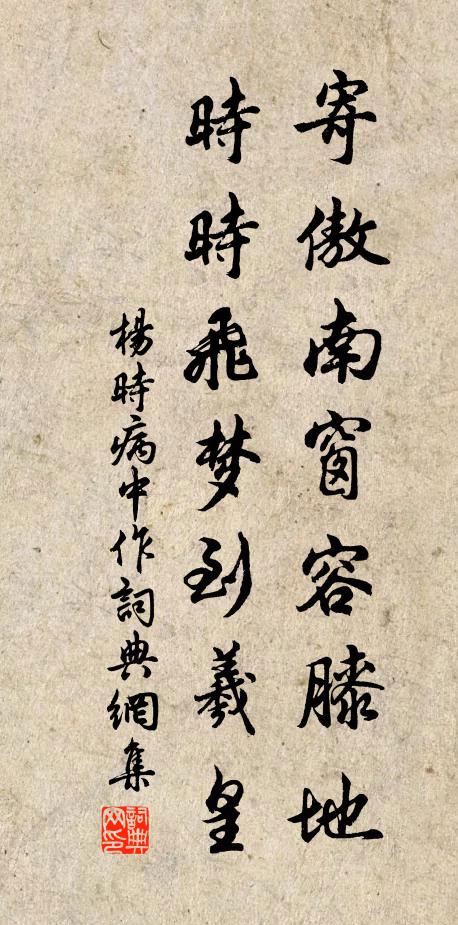 寄傲南窗容膝地
時時飛梦到羲皇
楊時病中作詞典網集
詞典网印